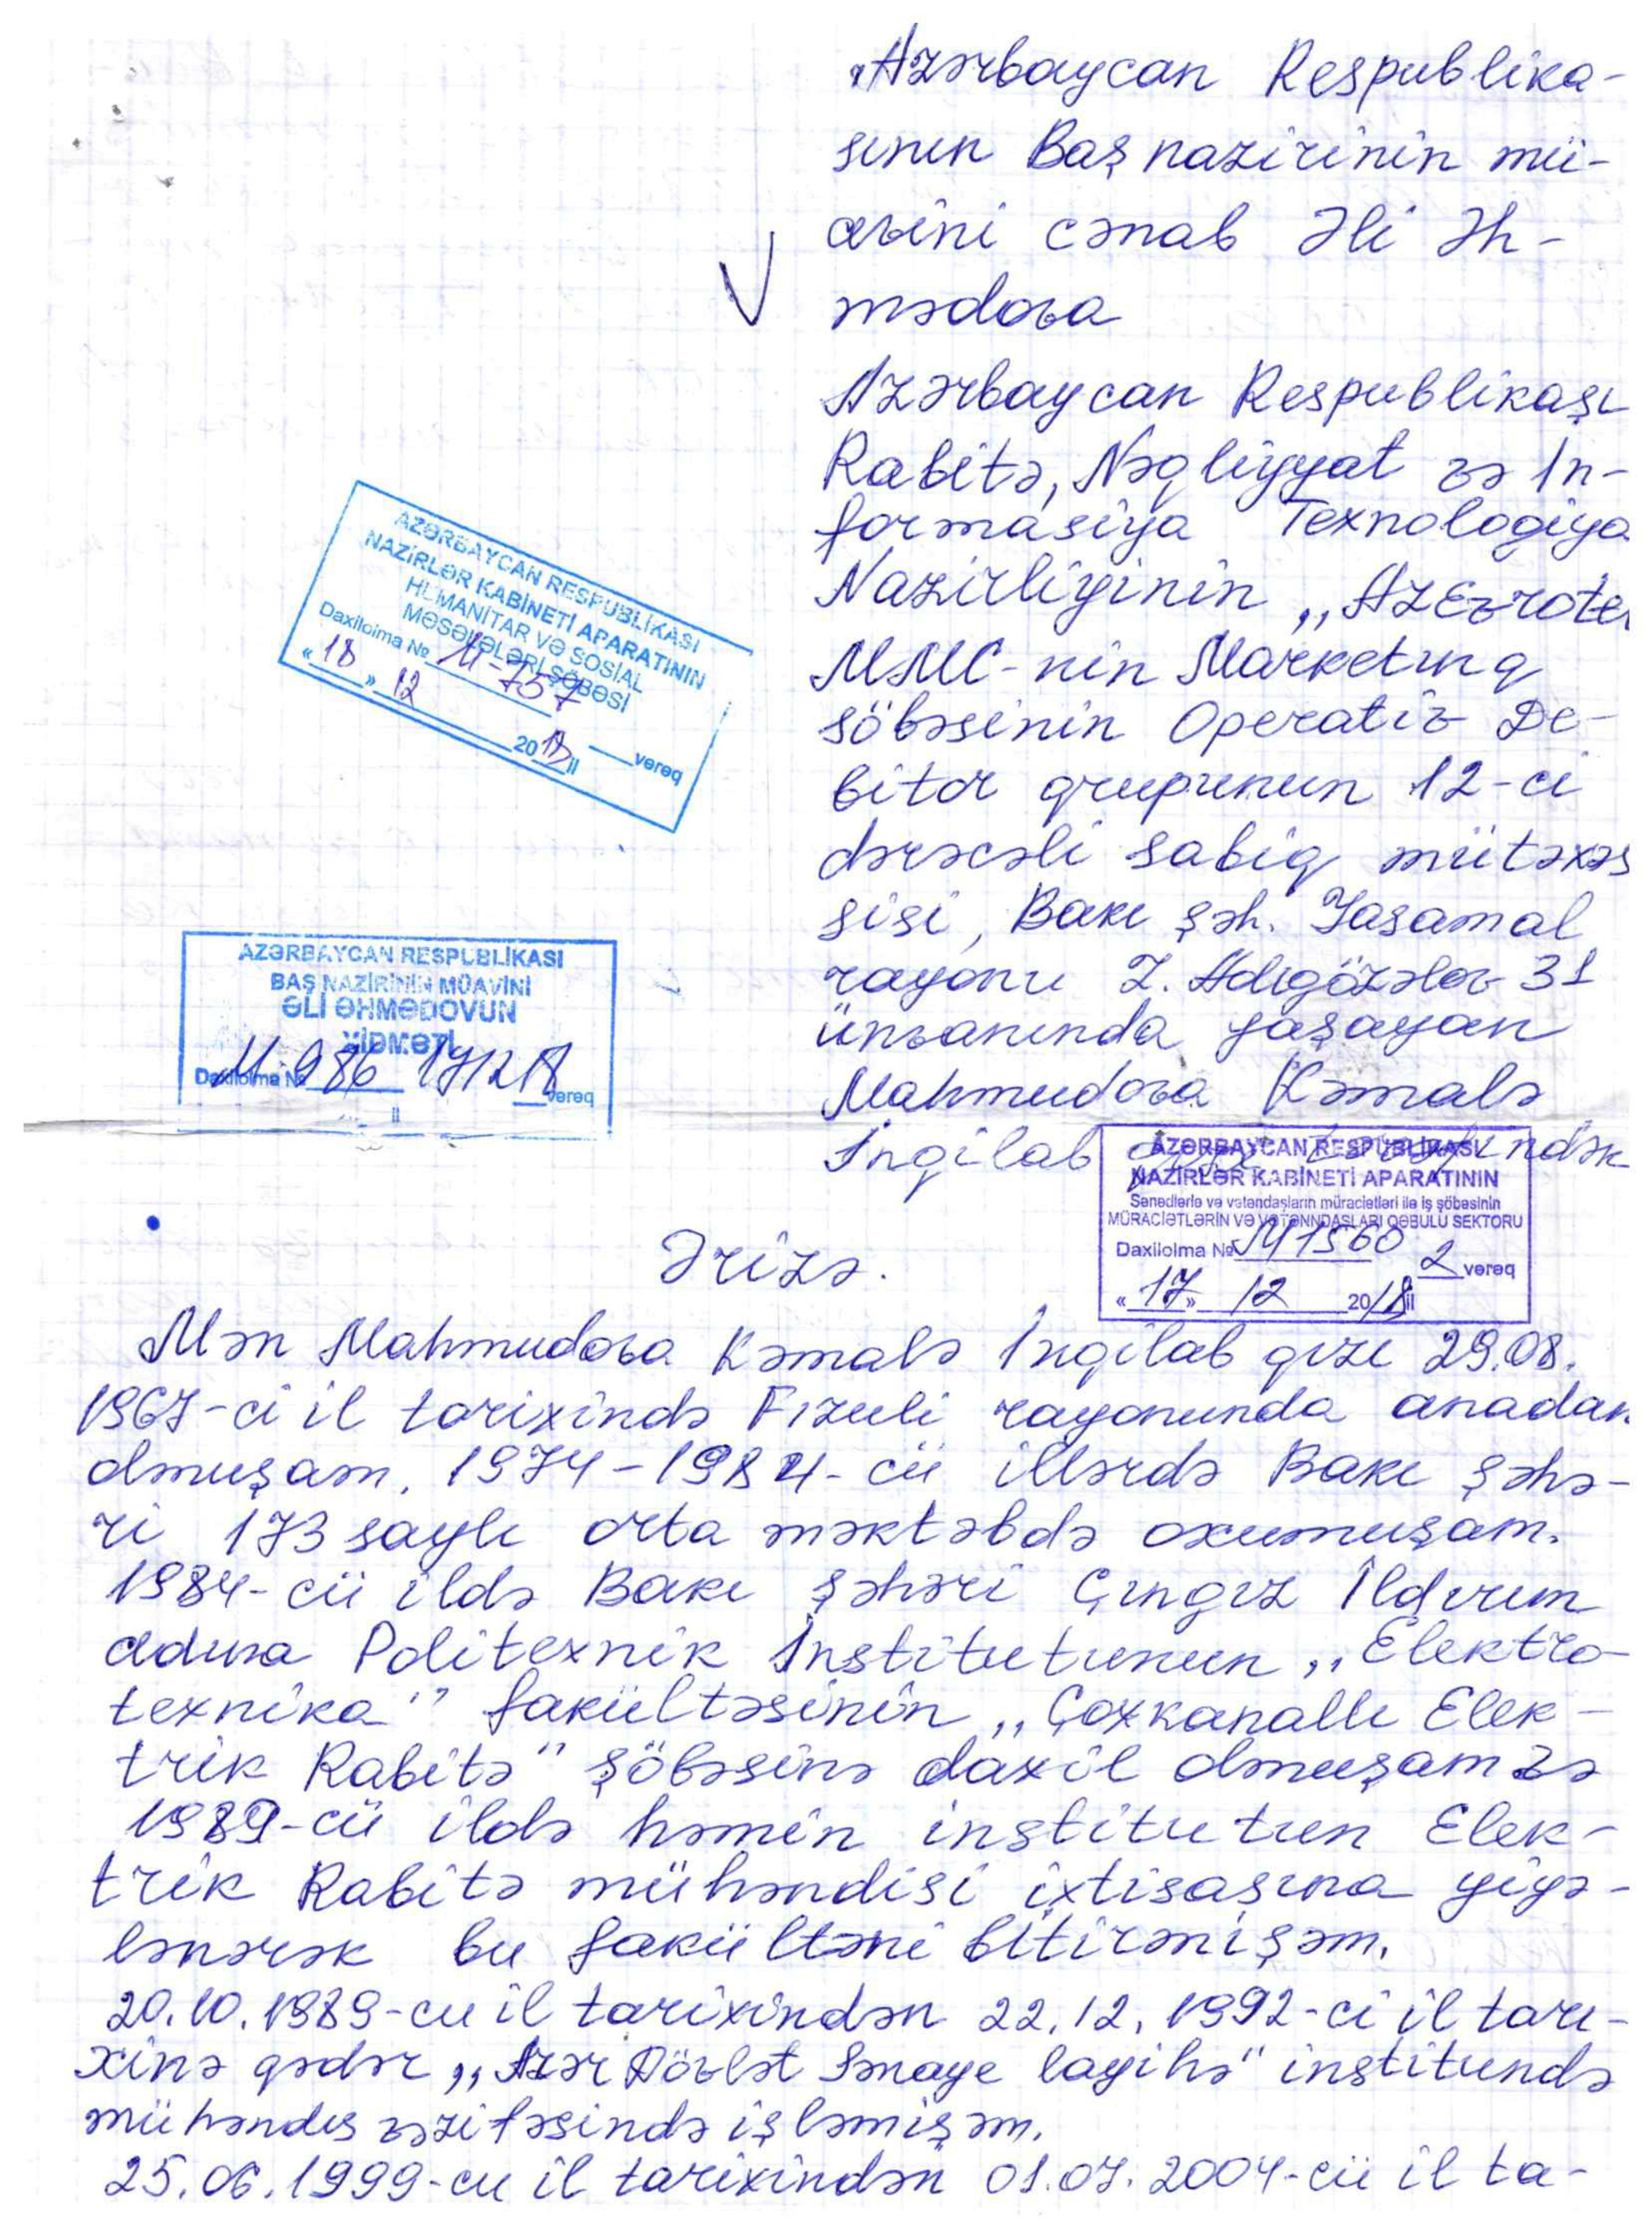 Azərbaycan Respublika-
sının Baş nazirinin mü-
avini cənab Əli Əh-
mədova
Azərbaycan Respublikaşı
Rabitə, Nəqliyyat və In-
formasiya Texnologiya
Nazirliyinin „AzEvrote
MMC-nin Marketınq
söbəsinin Operativ De-
bitor qrupunun 12-ci
dərəcəli sabiq mütəxəs
sisi, Bakı şəh. Yasamal
rayonu Z. Adıgözəlov 31
ünvanında yaşayan
Mahmudova Kəmalə
İnqilab
AZƏRBAYCAN RESPUBLİKASI
NAZİRLƏR KABİNETİ APARATININ
HUMANİTAR VƏ SOSİAL
MƏSƏLƏLƏRİ ŞÖBƏSİ
Daxilolma № M-757
« 18 » 12 2018 il vərəq
AZƏRBAYCAN RESPUBLİKASI
BAŞ NAZİRİNİN MÜAVİNİ
ƏLİ ƏHMƏDOVUN
XİDMƏTİ
Daxilolma № M-986 171218 vərəq
il
AZƏRBAYCAN RESPUBLİKASI
NAZİRLƏR KABİNETİ APARATININ
Sənədlərlə və vətəndaşların müraciətləri ilə iş şöbəsinin
MÜRACİƏTLƏRİN VƏ VƏTƏNNDAŞLARI QƏBULU SEKTORU
Daxilolma № M1560 2 vərəq
« 17 » 12 2018 il
Ərizə.
Mən Mahmudova Kəmalə İnqilab qızı 29.08.
1967-ci il tarixində Fizuli rayonunda anadan
olmuşam. 1974-1984-cü illərdə Bakı şəhə-
ri 173 saylı orta məktəbdə oxumuşam.
1984-cü ildə Bakı şəhəri Çıngız İldırım
adına Politexnik İnstitutunun „Elektro-
texnika" fakültəsinin „Çoxkanallı Elek-
trik Rabitə" şöbəsinə daxil olmuşam və
1989-cü ildə həmin institutun Elek-
trik Rabitə mühəndisi ixtisaşına yiyə-
lənərək bu fakültəni bitirmişəm.
20.10.1989-cu il tarixindən 22.12.1992-ci il tari-
xinə qədər „Azər Dövlət Sənaye layihə" institundə
mühəndis vəzifəsində işləmişəm.
25.06.1999-cu il tarixindən 01.07.2004-cü il ta-